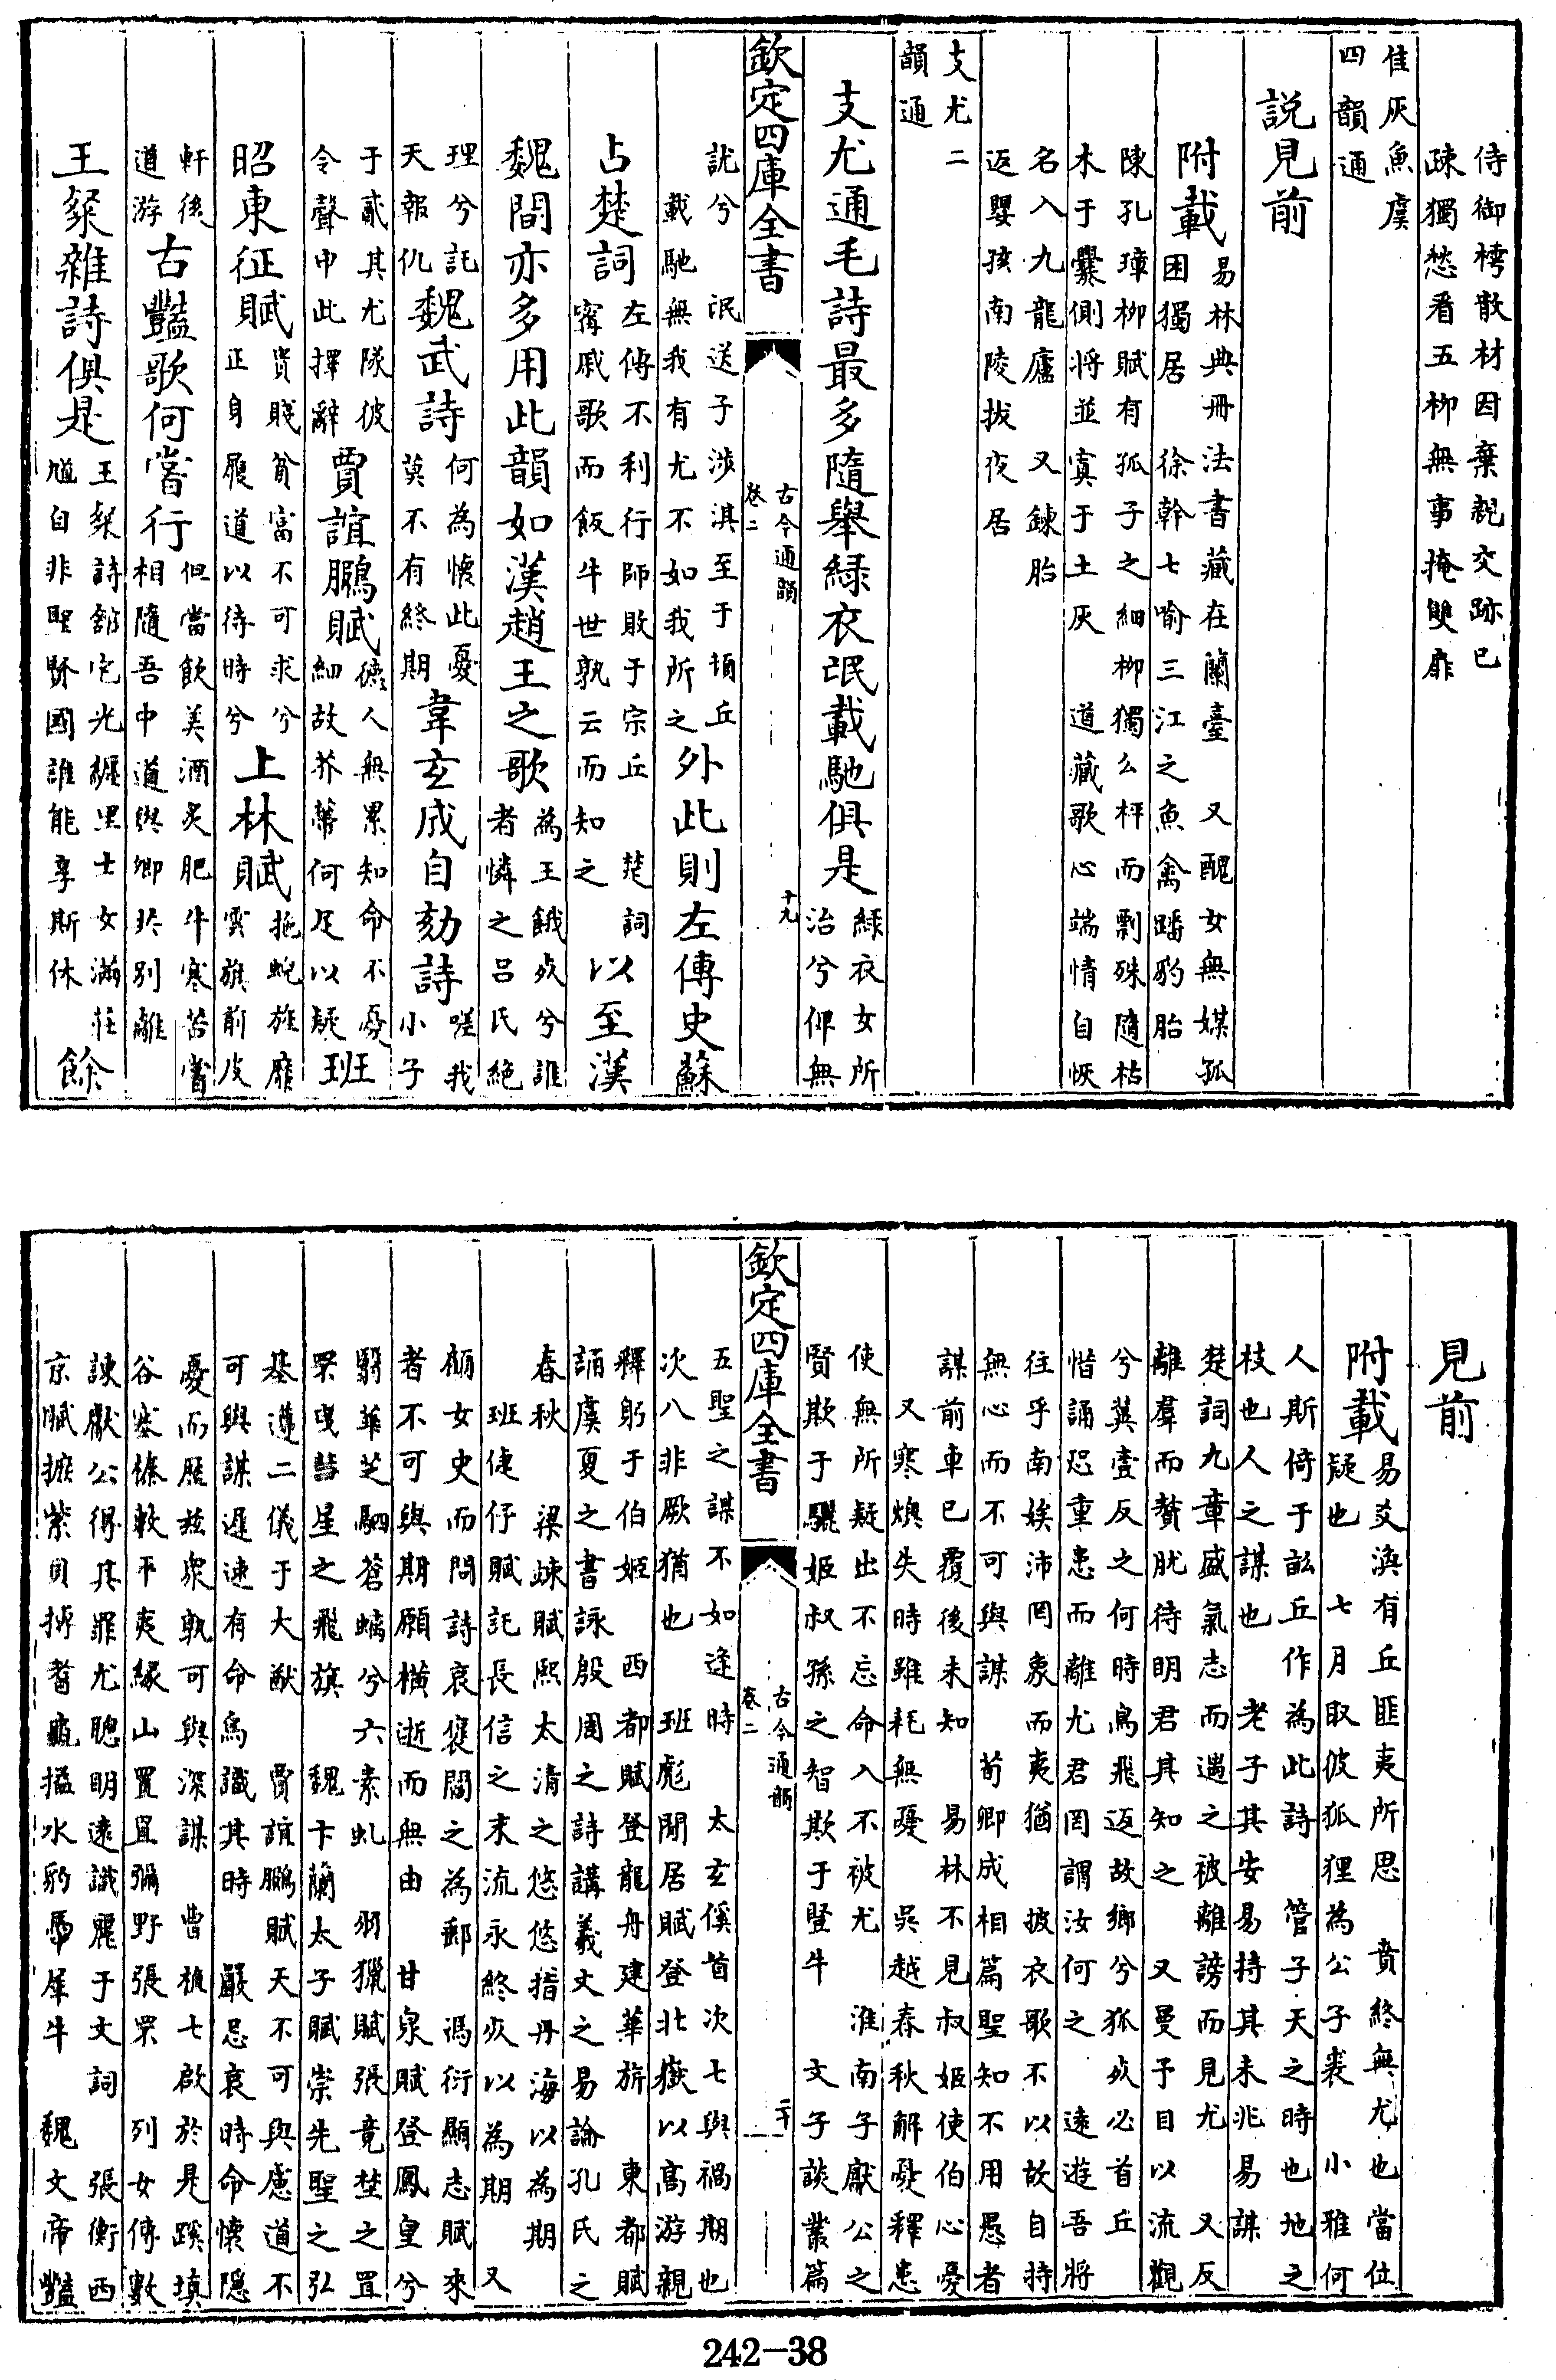 侍御樗散材因棄親交跡已
疎獨愁看五柳無事掩雙扉
佳灰魚虞
四韻通
説見前
附載
易林典冊法書藏在蘭臺　又醜女無媒孤
困獨居　徐幹七喻三江之魚禽蹯豹胎
陳孔璋柳賦有孤子之細柳獨么枰而剽殊隨枯
木于爨側將並寘于土灰　道藏歌心端情自恢
名入九龍廬　又鍊胎
返嬰孩南陵拔夜居
支尤二
韻通
支尤通毛詩最多隨舉綠衣氓載馳俱是
綠衣女所
治兮俾無
欽定四庫全書
古今通韻
卷二
十九
訧兮　氓送子涉淇至于頓丘
載馳無我有尤不如我所之
外此則左傳史蘇
占楚詞
左傳不利行師敗于宗丘　楚詞
甯戚歌而飯牛世孰云而知之
以至漢
魏間亦多用此韻如漢趙王之歌
為王餓死兮誰
者憐之呂氏絕
理兮託
天報仇
魏武詩
何為懷此憂
莫不有終期
韋玄成自劾詩
嗟我
小子
于貳其尤隊彼
令聲申此擇辭
賈誼鵩賦
德人無累知命不憂
細故芥蔕何足以疑
班
昭東征賦
貴賤貧富不可求兮
正身履道以待時兮
上林賦
拖蜺旌靡
雲旗前皮
軒後
道游
古豔歌何嘗行
但當飲美酒炙肥牛寒苦嘗
相隨吾中道與卿於別離
王粲雜詩俱是
王粲詩館宅充㕓里士女滿莊
馗自非聖賢國誰能享斯休
餘
見前
附載
易爻渙有丘匪夷所思　賁終無尤也當位
疑也　七月取彼狐狸為公子裘　小雅何
人斯倚于畝丘作為此詩　管子天之時也地之
枝也人之謀也　老子其安易持其未兆易謀
楚詞九章盛氣志而過之被離謗而見尤　又反
離羣而贅肬待明君其知之　又曼予目以流觀
兮冀壹反之何時鳥飛返故鄉兮狐死必首丘
惜誦恐重患而離尤君罔謂汝何之　遠遊吾將
往乎南娭沛罔象而夷猶　披衣歌不以故自持
無心而不可與謀　荀卿成相篇聖知不用愚者
謀前車已覆後未知　易林不見叔姬使伯心憂
又寒燠失時雖耗無憂　吳越春秋解憂釋患
使無所疑出不忘命入不被尤　淮南子獻公之
賢欺于驪姬叔孫之智欺于豎牛　文子談叢篇
欽定四庫全書
古今通韻
卷二
二十
五聖之謀不如逢時　太玄傒首次七與禍期也
次八非厥猶也　班彪閒居賦登北嶽以高游親
釋躬于伯姬　西都賦登龍舟建華旂　東都賦
誦虞夏之書詠殷周之詩講羲文之易論孔氏之
春秋　梁竦賦熙太清之悠悠指丹海以為期
班倢伃賦託長信之末流永終死以為期　又
顧女史而問詩哀褒閻之為郵　馮衍顯志賦來
者不可與期願橫逝而無由　甘泉賦登鳳皇兮
翳華芝駟蒼螭兮六素虬　羽獵賦張竟壄之罝
罘曳彗星之飛旗　魏卞蘭太子賦崇先聖之弘
基遵二儀于大猷　賈誼鵩賦天不可與慮道不
可與謀遲速有命烏識其時　嚴忌哀時命懷隱
憂而歷玆衆孰可與深謀　曹植七啟於是蹊填
谷塞榛藪平夷緣山置罝彌野張罘　列女傳數
諫獻公得其罪尤聰明遠識麗于文詞　張衡西
京賦摭紫貝搏耆龜搤水豹馽犀牛　魏文帝豔
242-38